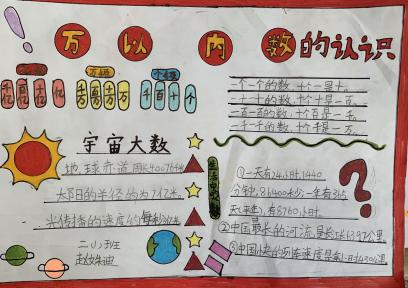 万以内数的认识
亿级 万级 个级
千亿 百亿 十亿 亿 千万 百万 十万 万 千 百 十 个
一个一个的数,十个一是十。
一十一十的数,十个十是一百。
一百一百的数,十个百是一千。
一千一千的数,十个千是一万。
宇宙大数
地球赤道周长40076千米
太阳的半径约为7亿米。
光传播的速度约每秒
二(八)班
①一天有24小时,1440
分钟,86400秒,一年有365
天(平年),有8760小时。
②中国最长的河流是长江6397公里